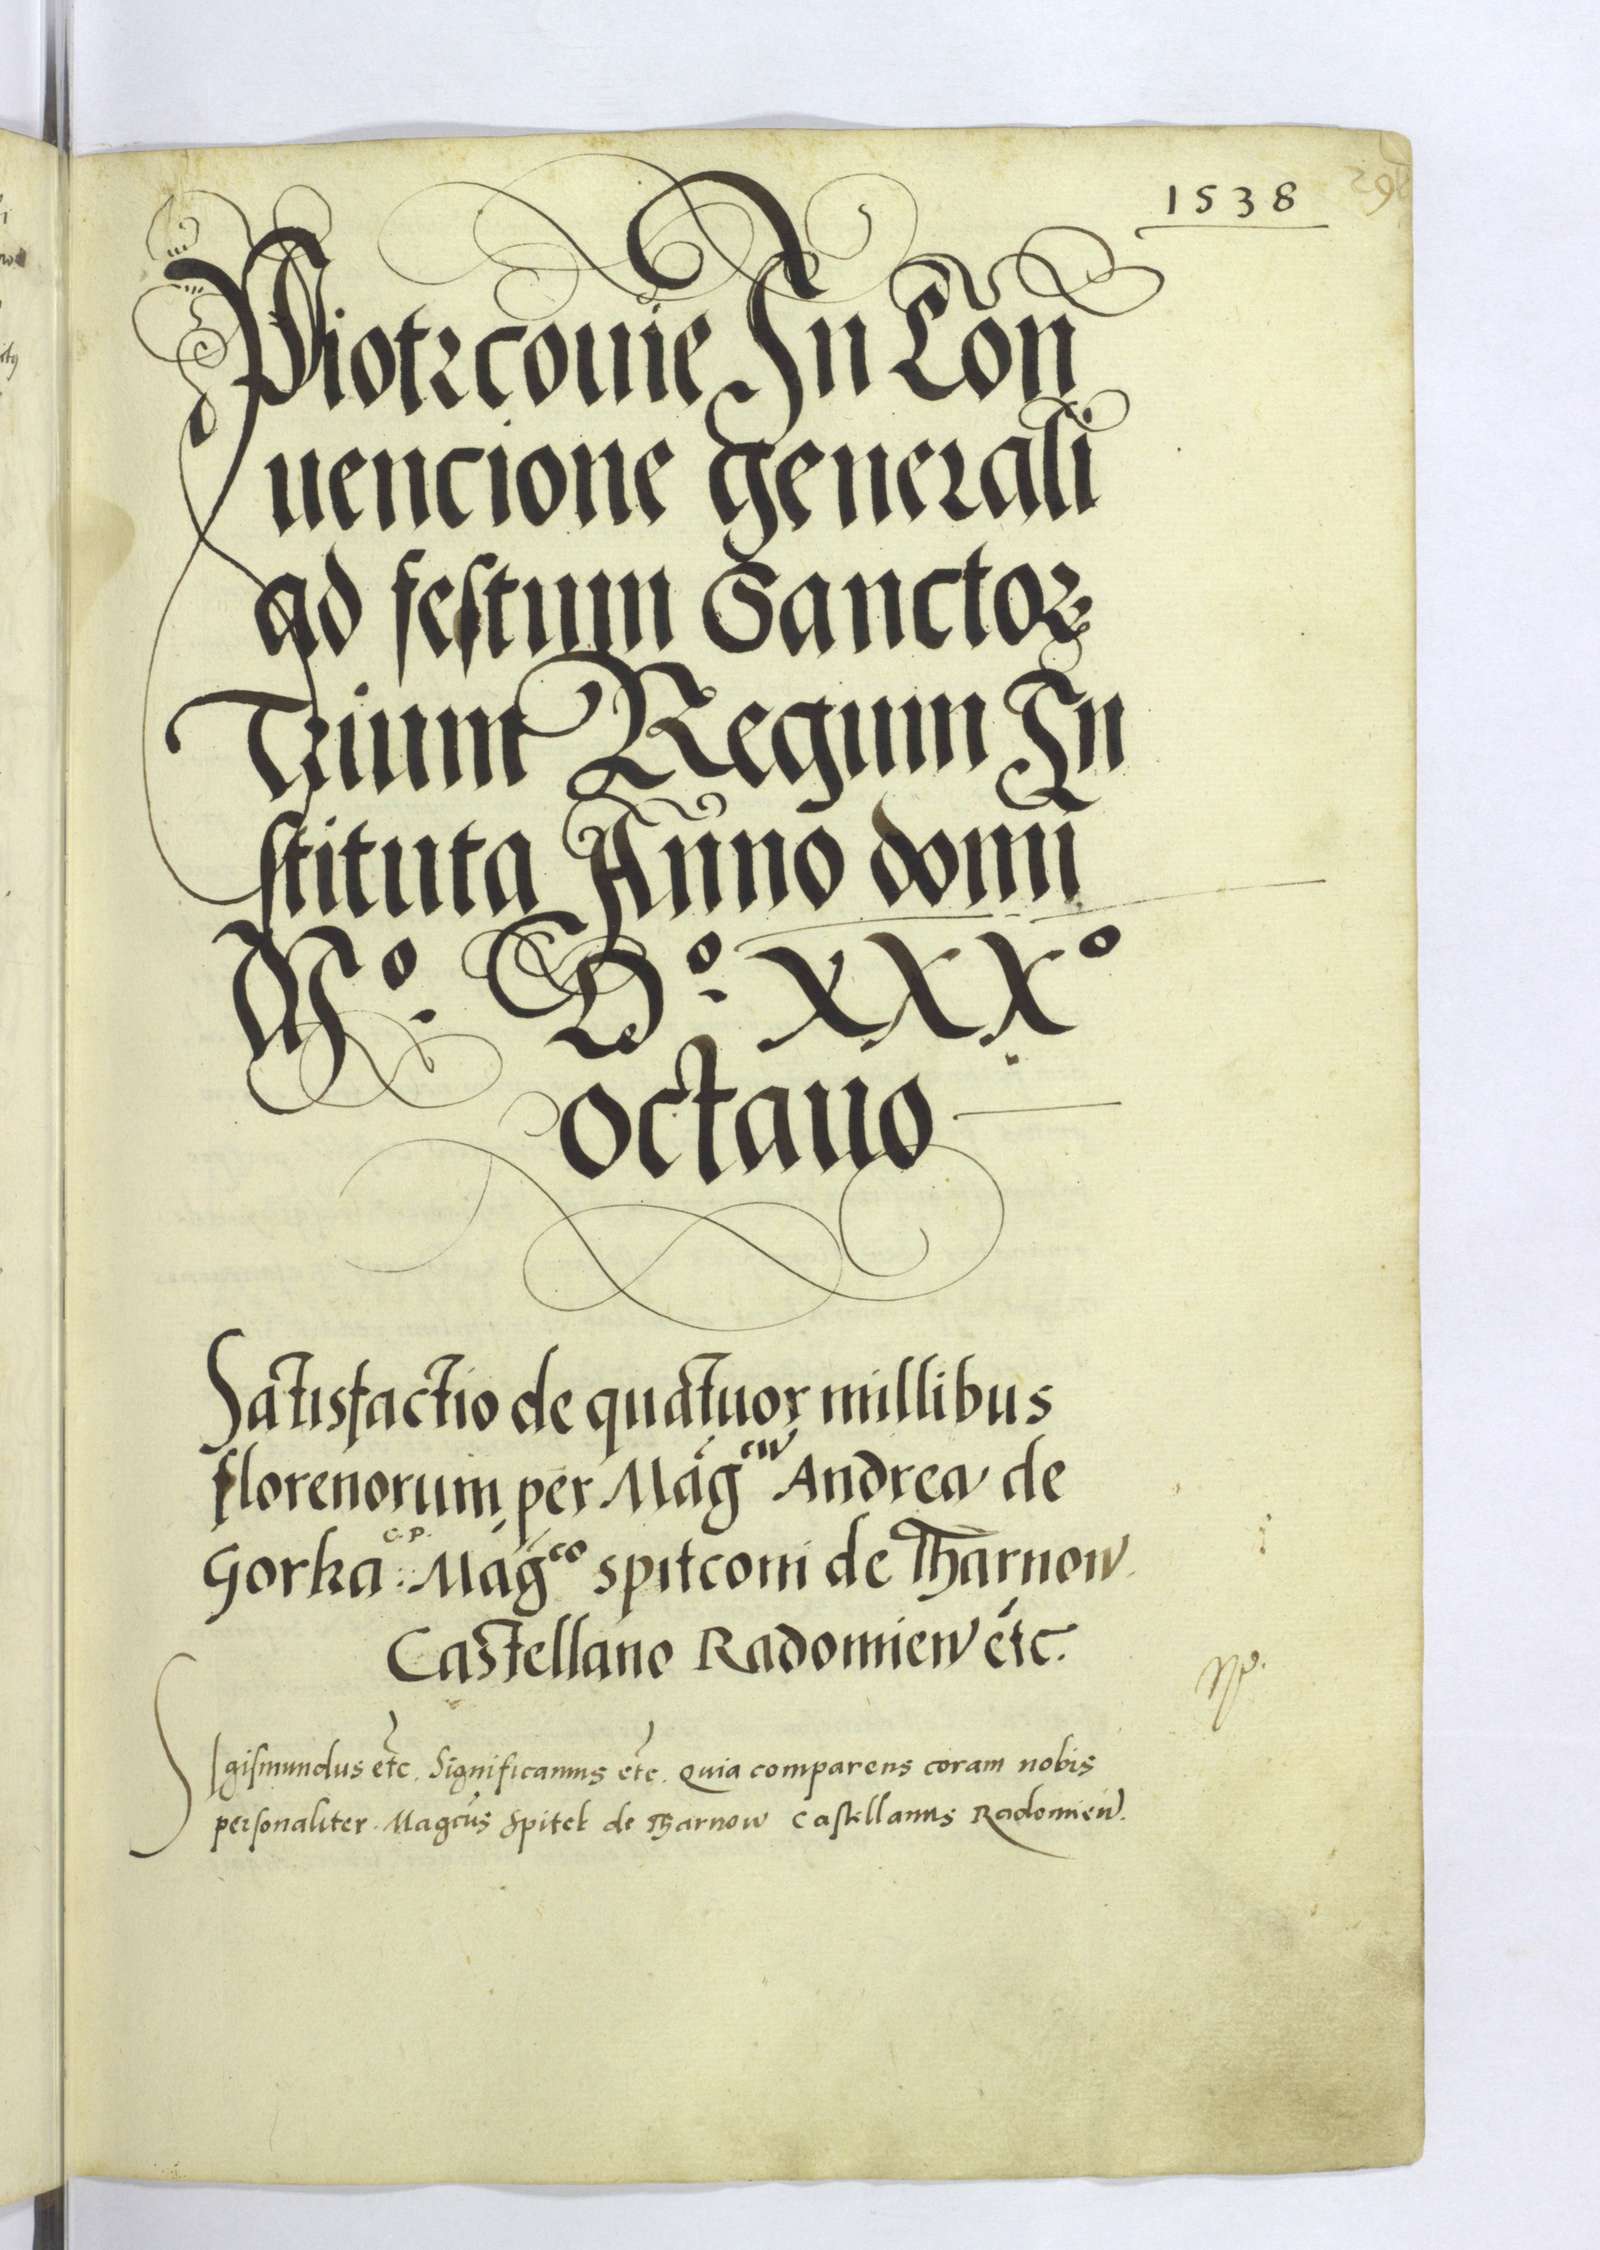 1538
Piotrcouie In Con
uencione generali
ad festum Sanctorꝝ
Trium Regum In
stituta Anno domi
Mº. Dº. XXXº
octauo
Satisfactio de quatuor millibus
florenorum per Magcu Andrea de
Gorka C.P. Magco spitconi de Tharnow
Castellano Radomien etc.
Sigismundus etc. Significamus etc. Quia comparens coram nobis
personaliter Magcus Spitek de Tharnow Castellanus Radomien.